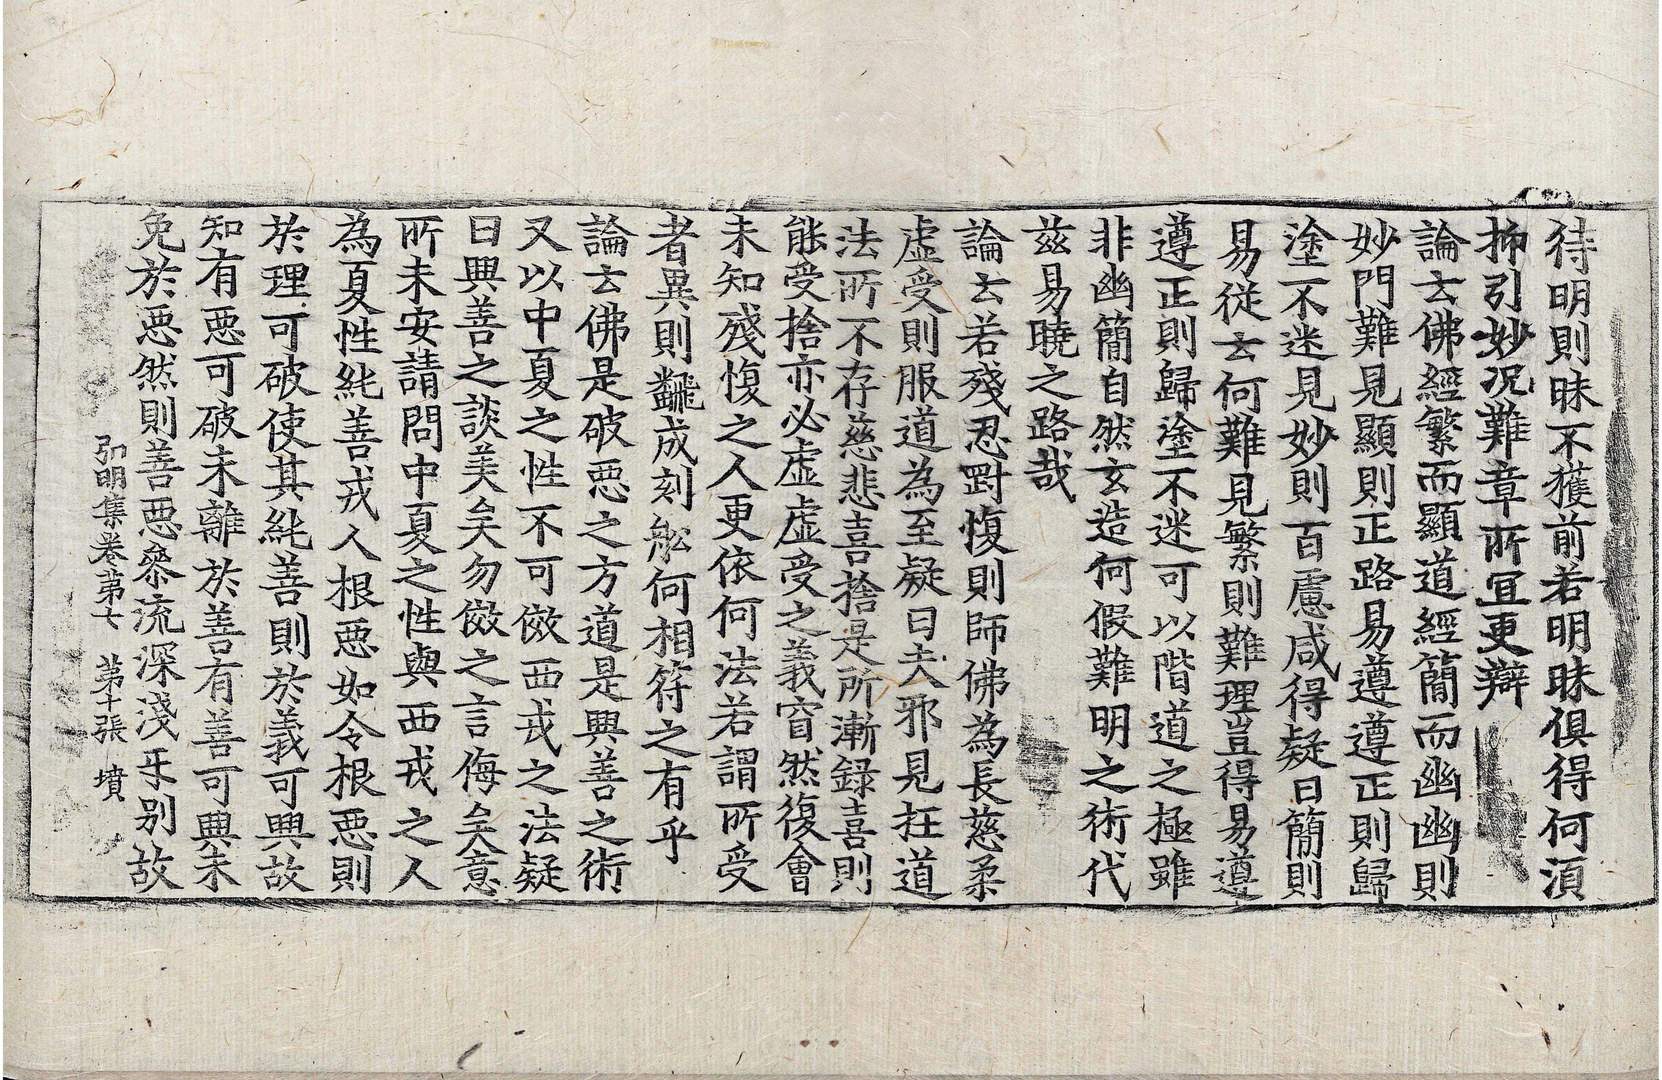 待明則昧不獲前若明昧俱得何湏
抑引妙况難章所冝更辯
論云佛經繁而顯道經簡而幽幽則
妙門難見顯則正路易遵遵正則歸
塗不迷見妙則百慮咸得疑曰簡則
易從云何難見繁則難理豈得易遵
遵正則歸塗不迷可以階道之極雖
非幽簡自然玄造何假難明之術代
兹易曉之路哉
論云若殘忍剛愎則師佛為長慈柔
虚受則服道為至疑曰夫邪見抂道
法所不存慈悲喜捨是所漸録喜則
能受捨亦必虚虚受之義窅然復會
未知殘愎之人更依何法若謂所受
者異則翻成刻舩何相符之有乎
論云佛是破惡之方道是興善之術
又以中夏之性不可傚西戎之法疑
曰興善之談美矣勿傚之言侮矣意
所未安請問中夏之性與西戎之人
為夏性純善戎人根惡如令根惡則
於理可破使其純善則於義可興故
知有惡可破未離於善有善可興未
免於惡然則善惡叅流深淺乐别故
弘明集卷第七 第十張 墳